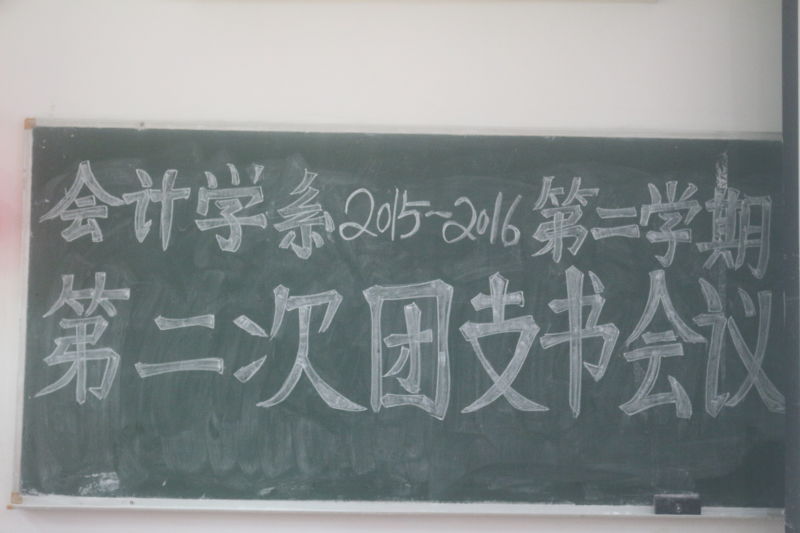 会计学系2015~2016第二学期
第二次团支书会议